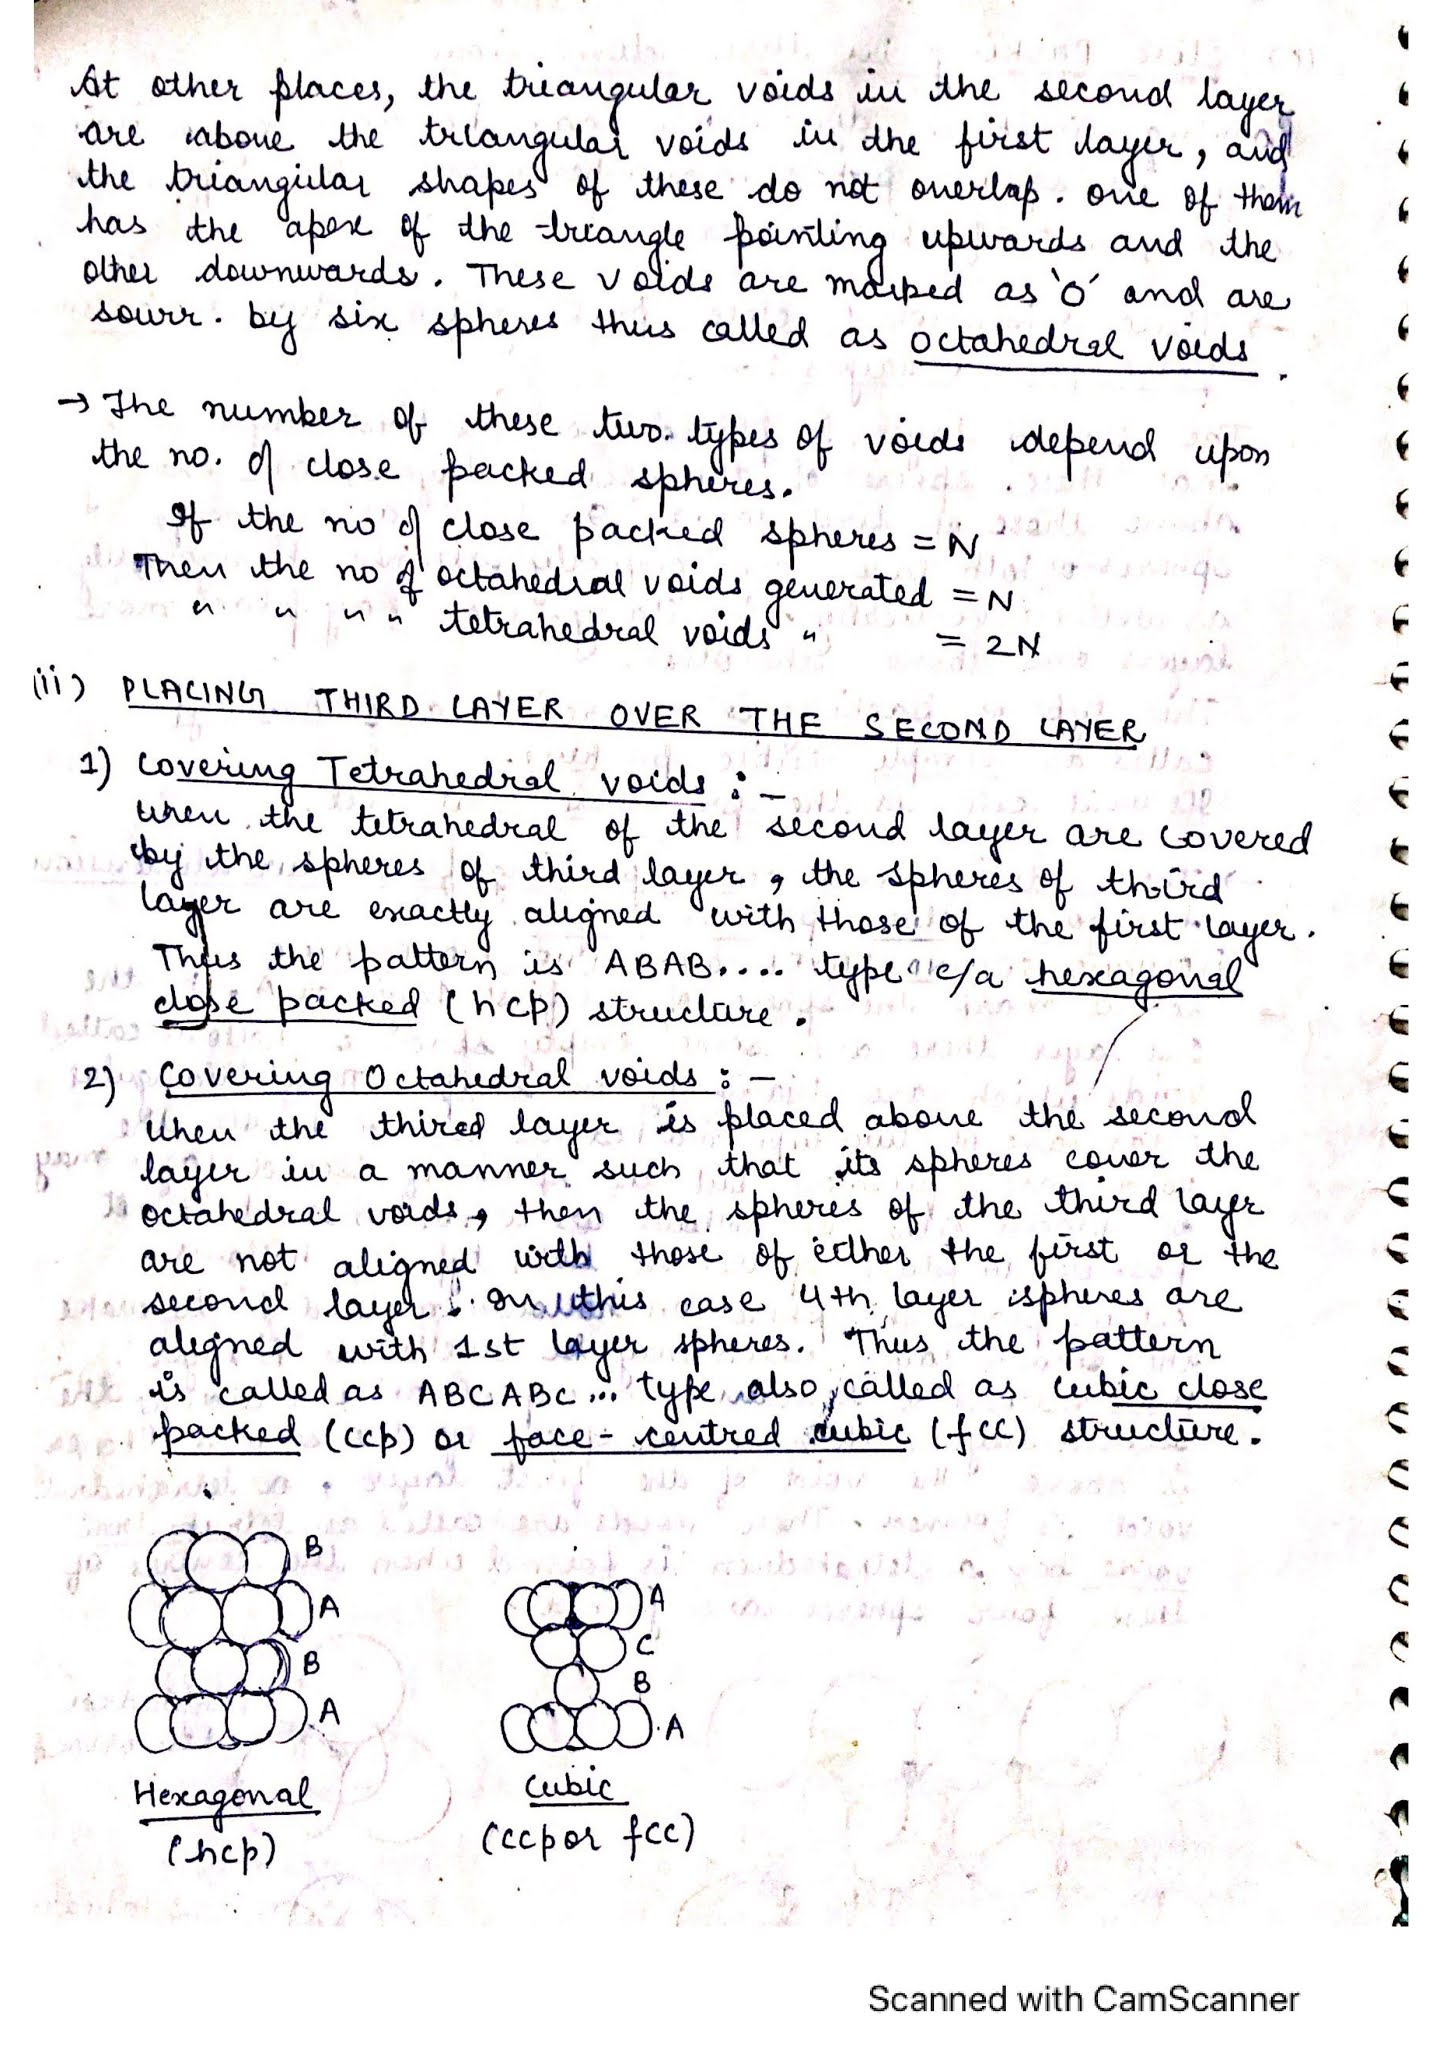 At other places, the triangular voids in the second layer
are above the triangular voids in the first layer, and
the triangular shapes of these do not overlap. One of them
has the apex of the triangle pointing upwards and the
other downwards. These voids are marked as 'O' and are
sourr. by six spheres thus called as octahedral voids.
→ The number of these two types of voids depend upon
the no. of close packed spheres.
If the no of close packed spheres = N
Then the no of octahedral voids generated = N
" " " " tetrahedral voids " = 2N
(ii) PLACING THIRD LAYER OVER THE SECOND LAYER
1) Covering Tetrahedral voids :-
When the tetrahedral of the second layer are covered
by the spheres of third layer, the spheres of third
layer are exactly aligned with those of the first layer.
Thus the pattern is ABAB.... type c/a hexagonal
close packed (hcp) structure.
2) Covering Octahedral voids :-
When the third layer is placed above the second
layer in a manner such that its spheres cover the
octahedral voids, then the spheres of the third layer
are not aligned with those of either the first or the
second layer. In this case 4th layer spheres are
aligned with 1st layer spheres. Thus the pattern
is called as ABCABC... type also called as cubic close
packed (ccp) or face-centred cubic (fcc) structure.
B
A
B
A
Hexagonal
(hcp)
A
C
B
A
Cubic
(ccp or fcc)
Scanned with CamScanner